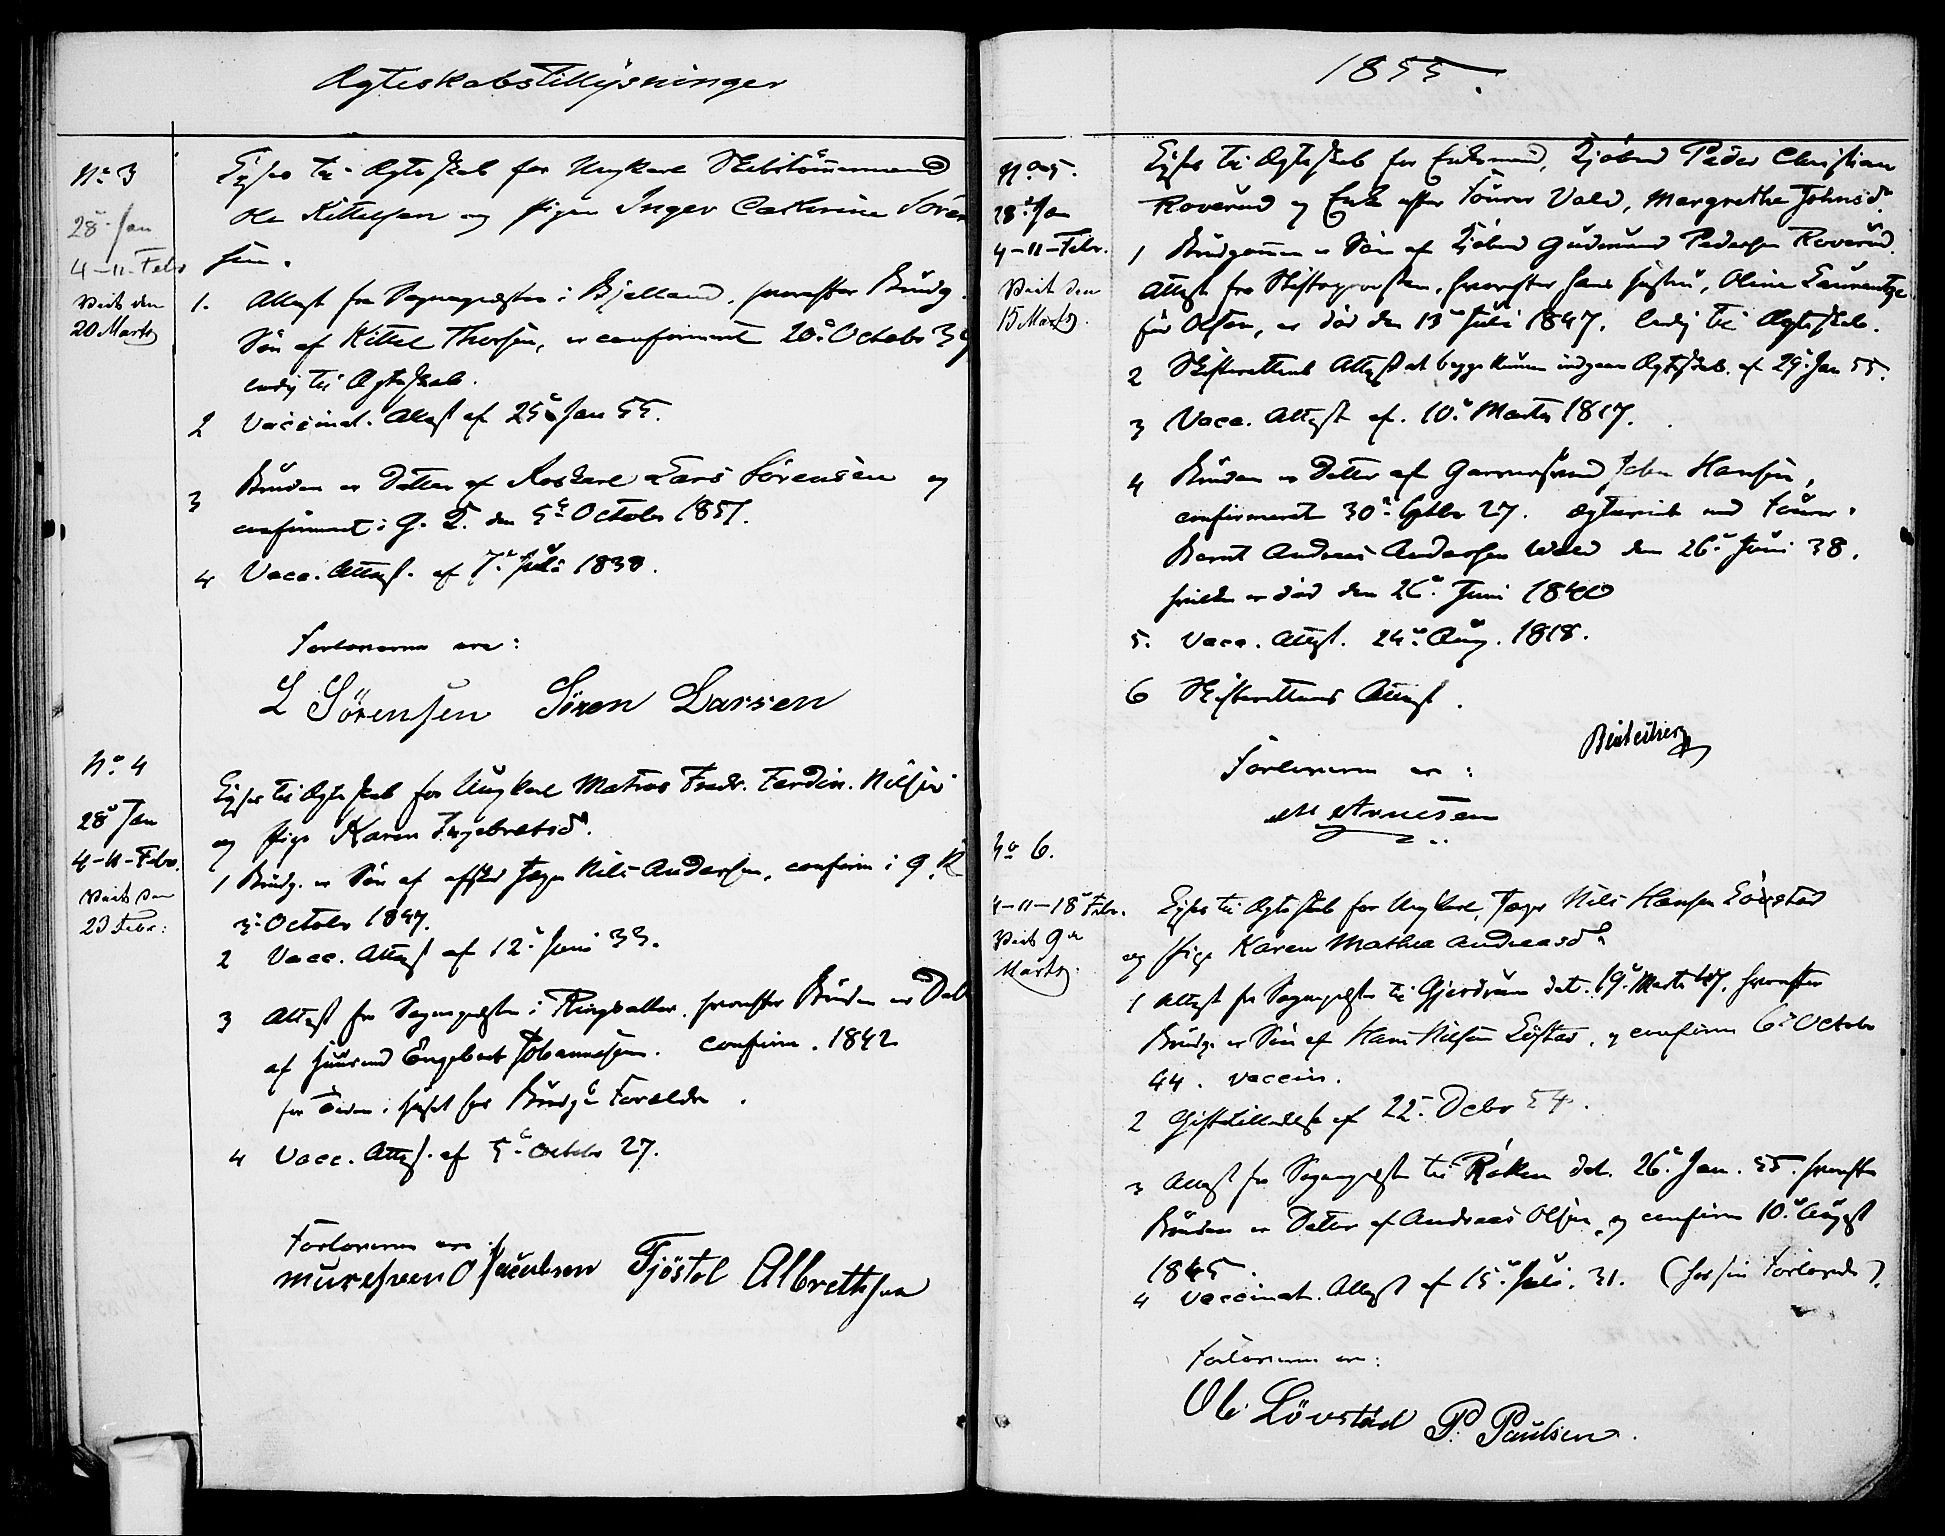 Ægteskabstillysninger
No 3
28 Jan
4-11-Febr
Viet den
20 Marts
Lyses til Ægteskab for Ungkarl Skibstömmermand
Ole Kittelsen og Pigen Inger Cathrine Sören
sen.
1. Attest fra Sognepræsten i Bjelland, hvorefter Brudg.
Sön af Kittel Thorsen, er confirmeret 20 Octobr 39
ledig til Ægteskab.
2 Vaccinat. Attest af 25 Jan 55.
3 Bruden er Datter af Lars Sörensen og
confirmeret i den 5 Octobr 1851.
4 Vacc. Attest. af 7 Juli 1838.
Forloverne ere:
L Sörensen Sören Larsen
No 4
28 Jan
4-11-Febr.
Viet den
23 Febr:
Lyses til Ægteskab for Ungkarl Matros Fredr. Ferdin. Nilsen
og Pige Karen Ingebretsd.
1 Brudg. er Sön af Nils Andersen, confirm i G. K
3 Octobr 1847.
2 Vacc. Attest af 12 Juni 33.
3 Attest fra Sognepræsten i Ringsaker, hvorefter Bruden er Datt
af Huusmd Engebret Johannesen. confirm. 1842
for Tiden i Huset hos Brudg Forældre.
4 Vacc. Attest. af 5 Octobr 27.
Forloverne ere:
Jacobsen Tjöstol Albrethsen
1855.
No 5.
28 Jan
4-11-Febr.
Viet den
15 Marts.
Lyses til Ægteskab for Enkemand, Kjöbmd Peder Christian
Roverud og Enke efter Fourer Vald, Margrethe Johnsd.
1 Brudgommen er Sön af Kjöbmd Gudmund Pedersen Roverud.
Attest fra Stiftsprovsten, hvorefter hans Hustru, Oline Laurentze
född Olsen, er död den 13 Juli 1847. ledig til Ægteskab.
2 Skifterettens Attest at begge kunne indgaae Ægteskab. af 29 Jan 55.
3 Vacc. Attest af. 10 Marts 1817.
4 Bruden er Datter af John Hansen,
confirmeret 30 Septbr 27. ægteviet med Fourer
Bernt Andreas Andersen Wald den 26 Juni 38.
hvilken er död den 26 Juni 1840
5. Vacc. Attest. 24 Aug. 1818.
6 Skifterettens Attest.
Forloverne er:
Arnesen
No 6.
4-11-18 Febr.
Viet 9de
Marts.
Lyses til Ægteskab for Ungkarl, Nils Hansen Lövstad
og Pige Karen Mathea Andreasd.
1 Attest fra Sognepræsten til Gjerdrum dat. 19 Marts 47, hvorefter
Brudg. er Sön af Hans Nilsen Löstad, og confirm 6 Octobr
44. vaccin.
2 Giftetilladelse af 22 Decbr 54.
3 Attest fra Sognepræsten til Röken dat. 26 Jan. 55. hvorefter
Bruden er Datter af Andreas Olsen, og confirm 10 August
1845.
4 Vaccinat. Attest af 15 Juli. 31. (hos sin Forlover).
Forloverne ere:
Ole Lövstad P. Paulsen.